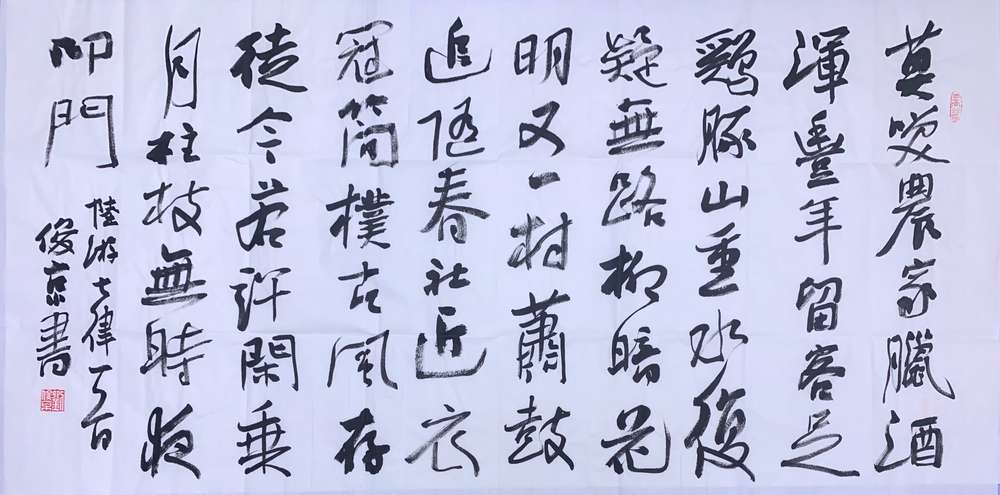 莫咲農家臘酒
渾豐年留客足
鷄豚山重水復
疑無路柳暗花
明又一村蕭鼓
追随春社近衣
冠簡樸古風存
從今若許閑乘
月柱杖無時夜
叩門
陸游七律一首
俊京書